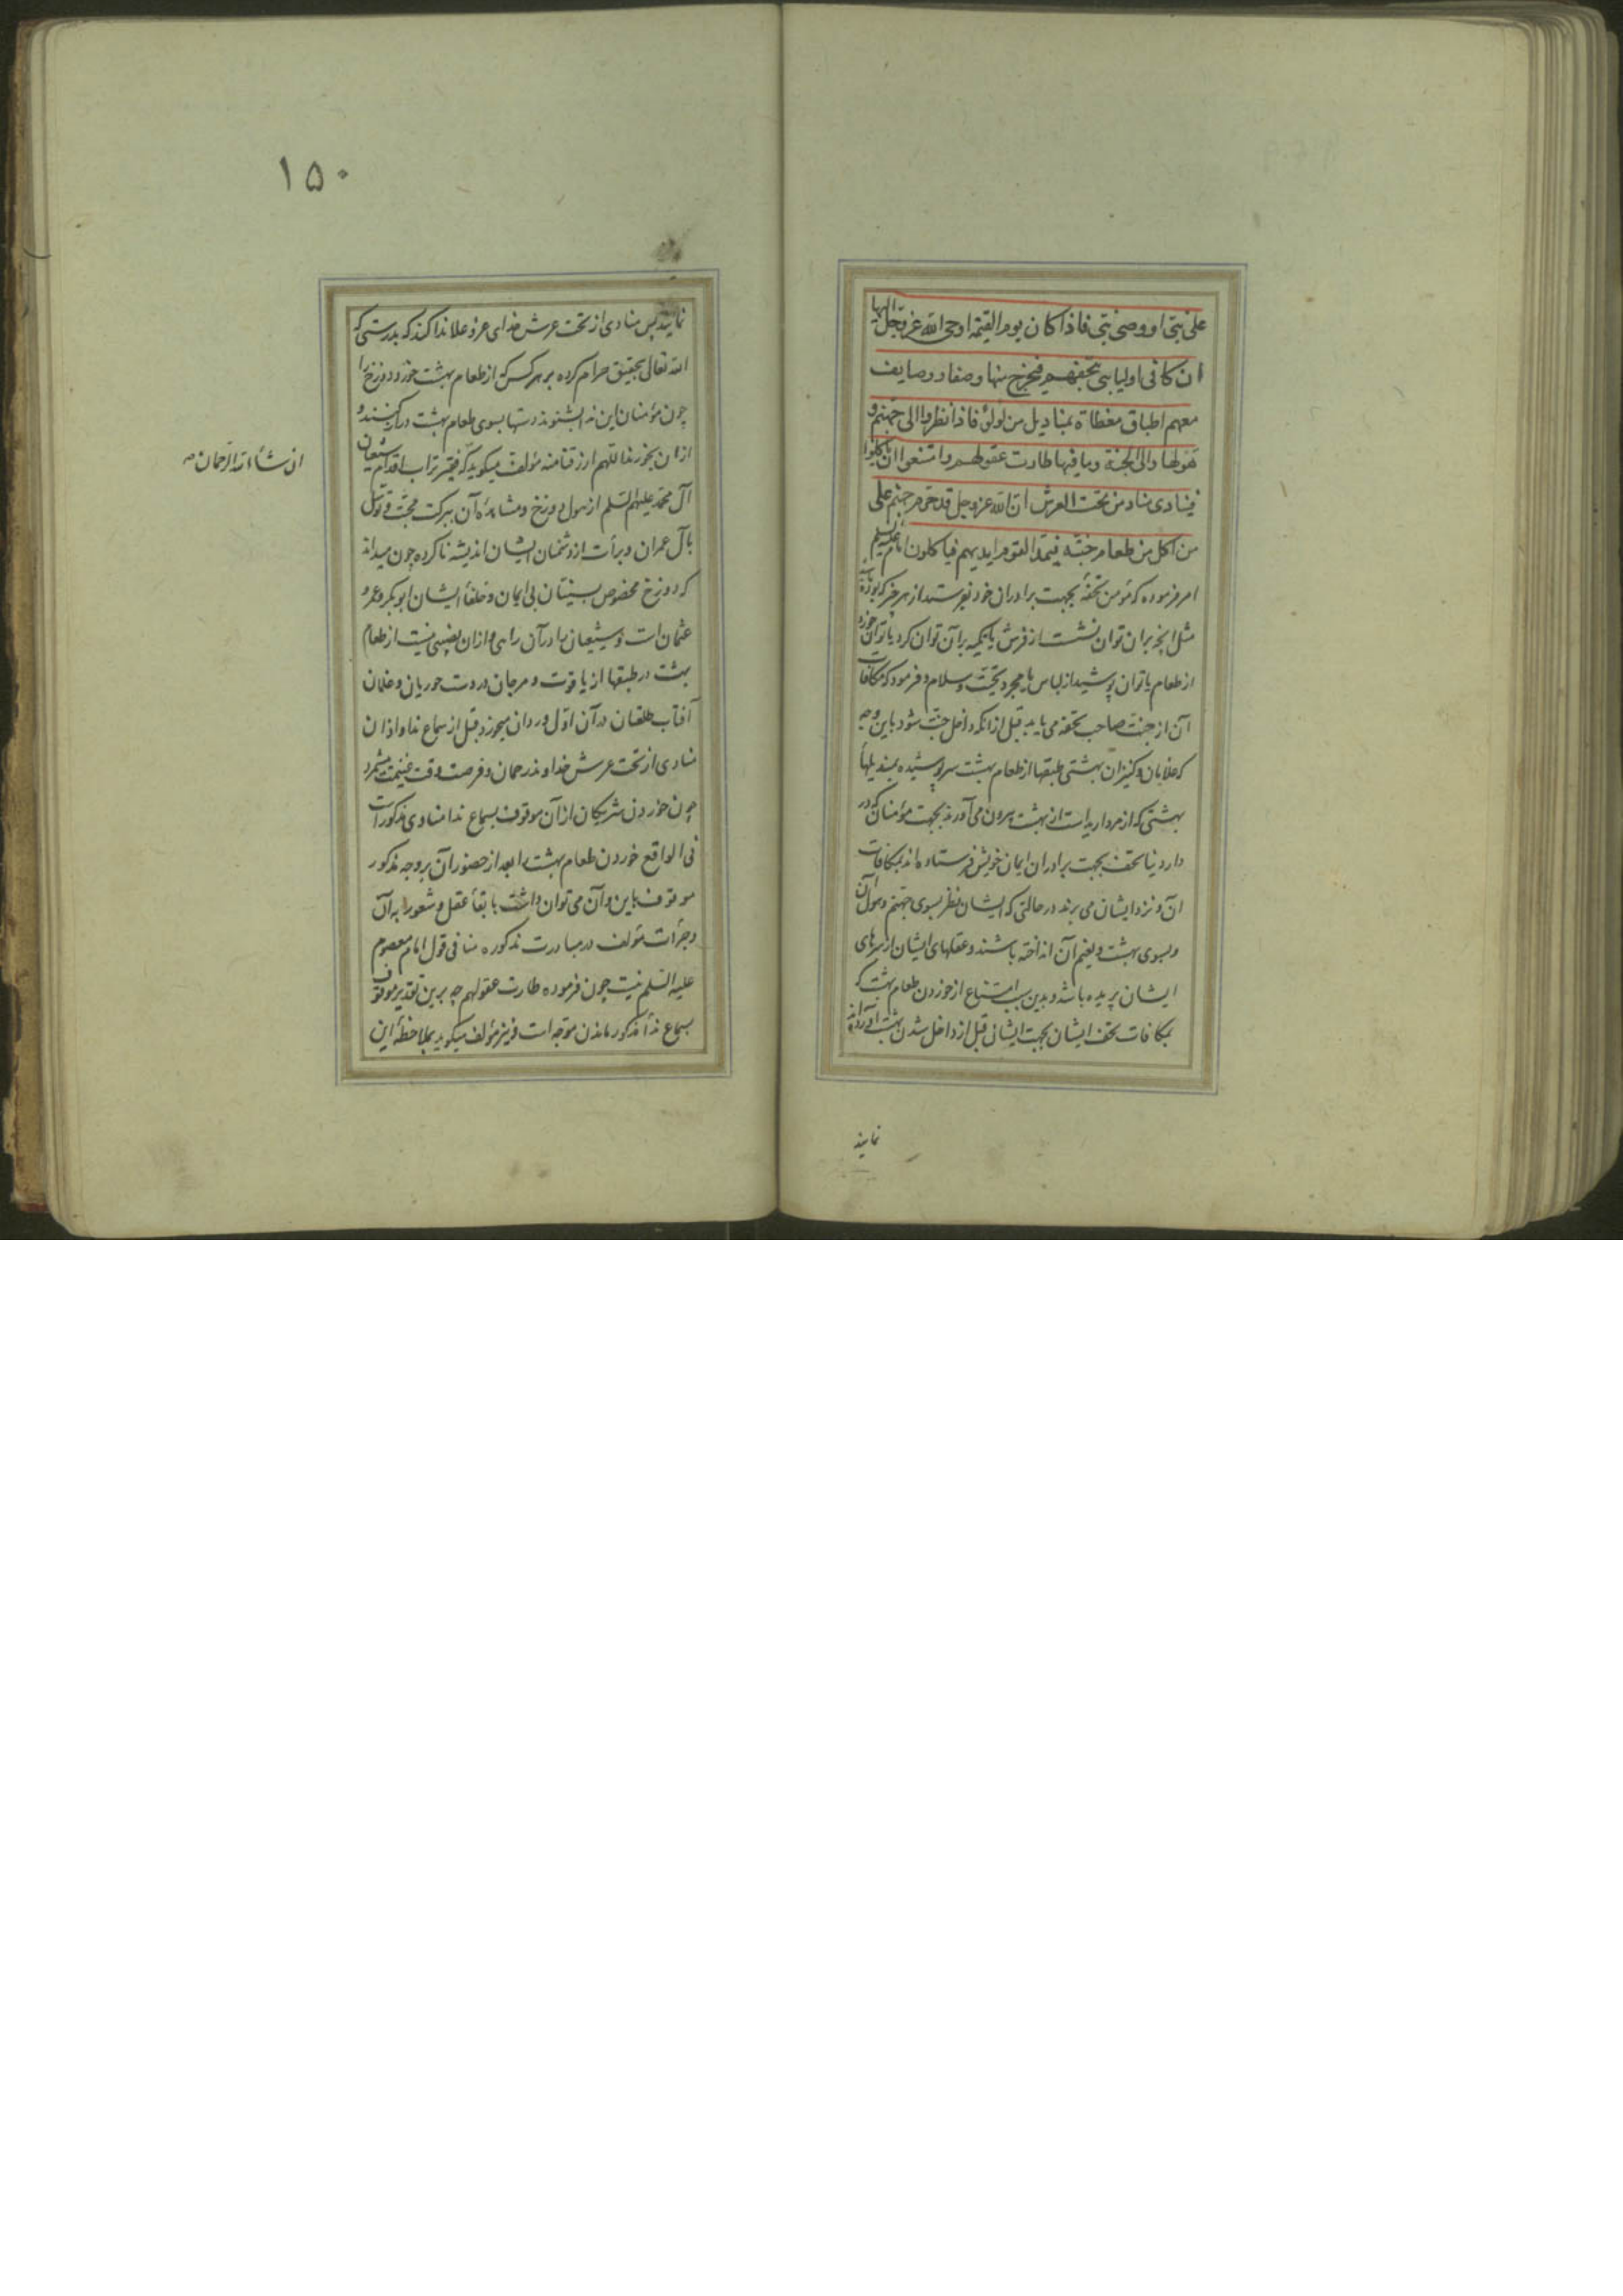 علی نبی او وصی نبی فاذا کان یوم القیمة اوحی الله عز وجل الیها
ان کافی اولیایی بتحفهم فیخرج منها وصفاء ووصایف
معهم اطباق مغطاة بمنادیل من لؤلؤ فاذا نظروا الی جهنم و
هولها والی الجنة وما فیها طارت عقولهم وامتنعوا ان یاکلوا
فینادی مناد من تحت العرش ان الله عز وجل قد حرم جهنم علی
من اکل من طعام جنته فیمد القوم ایدیهم فیاکلون امام علیه السلم
امر فرموده که مؤمن تحفهٔ بجهت برادران خود بفرستد از هر چیز که بوده باشد
مثل انچه بران توان نشست از فرش یا تکیه بر آن توان کرد یا توان خورد
از طعام یا توان پوشید از لباس یا مجرد تحیت و سلام و فرمود که مکافات
آن از جنت صاحب تحفه می یابد قبل از انکه داخل جنت شود باین وجه
که غلامان و کنیزان بهشتی طبقها از طعام بهشت سرپوشیده بمندیلهاء
بهشتی که از مروارید است از بهشت بیرون می آورند بجهت مؤمنان که در
دار دنیا تحف بجهت برادران ایمان خویش فرستاده اند بمکافات
آن و نزد ایشان می برند در حالتی که ایشان نظر بسوی جهنم و هول آن
و بسوی بهشت و نعیم آن انداخته باشند و عقلهای ایشان از سرهای
ایشان پریده باشد و بدین سبب امتناع از خوردن طعام بهشت که
بمکافات تحف ایشان بجهت ایشان قبل از داخل شدن بهشت آورده اند
نمایند
۱۵۰
نمایند پس منادی از تحت عرش خدای عز و علا ندا کند که بدرستی که
الله تعالی بتحقیق حرام کرده بر هر کس که از طعام بهشت خورد دوزخ را
چون مؤمنان این ندا بشنوند دستها بسوی طعام بهشت دراز کنند و
ازان بخورند اللهم ارزقنا منه مؤلف میکوید که فقیر تراب اقدام شیعیان
آل محمد علیهم السلم از هول دوزخ و مشاهدهٔ آن ببرکت محبت و توسل
بآل عمران و برأت از دشمنان ایشان اندیشه ناکرده چون میداند
که دوزخ مخصوص سنیان بی ایمان و خلفاء ایشان ابو بکر و عمر و
عثمان است و شیعیان را در آن راهی و ازان نصیبی نیست از طعام
بهشت در طبقها از یاقوت و مرجان در دست حوریان و غلمان
آفتاب طلعتان در آن اول وردان میخورد قبل از سماع ندا و اذان
منادی از تحت عرش خداوند رحمان و فرصت وقت غنیمت میشمرد
چون خوردن شریکان از آن موقوف بسماع ندا منادی مذکور است
فی الواقع خوردن طعام بهشت را بعد از حضور آن بر وجه مذکور
موقوف باین و آن می توان داشت با بقاء عقل و شعور به آن
و جرأت مؤلف در مبادرت مذکوره منافی قول امام معصوم
علیه السلم نیست چون فرموده طارت عقولهم چه برین تقدیر موقوف
بسماع نداء مذکور ماندن موجه است و نیز مؤلف میکوید بملاحظهٔ این
ان شاء الله الرحمان